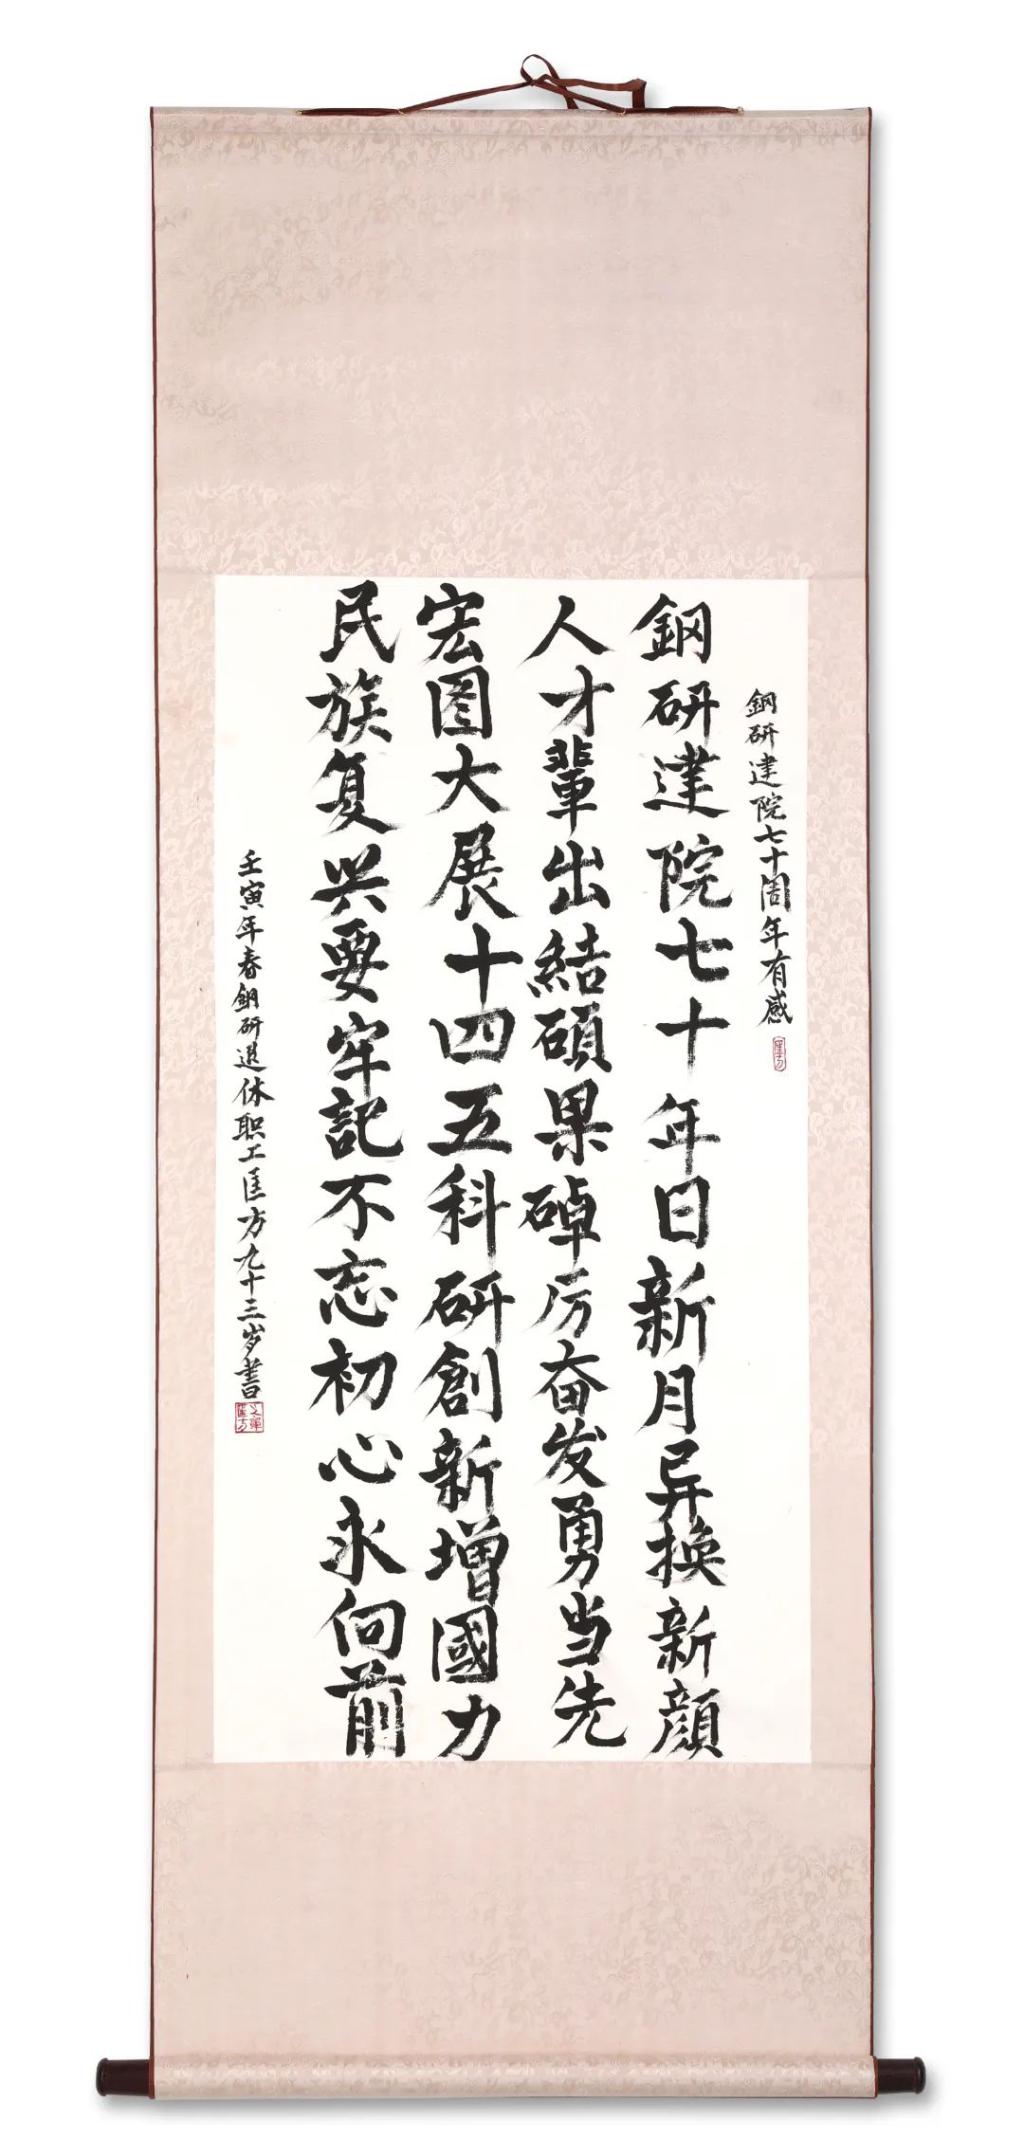 鋼研建院七十周年有感
鋼研建院七十年日新月异换新顔
人才輩出結碩果踔厉奋发勇当先
宏图大展十四五科研創新增國力
民族复兴要牢記不忘初心永向前
壬寅年春鋼研退休职工匡方九十三岁書